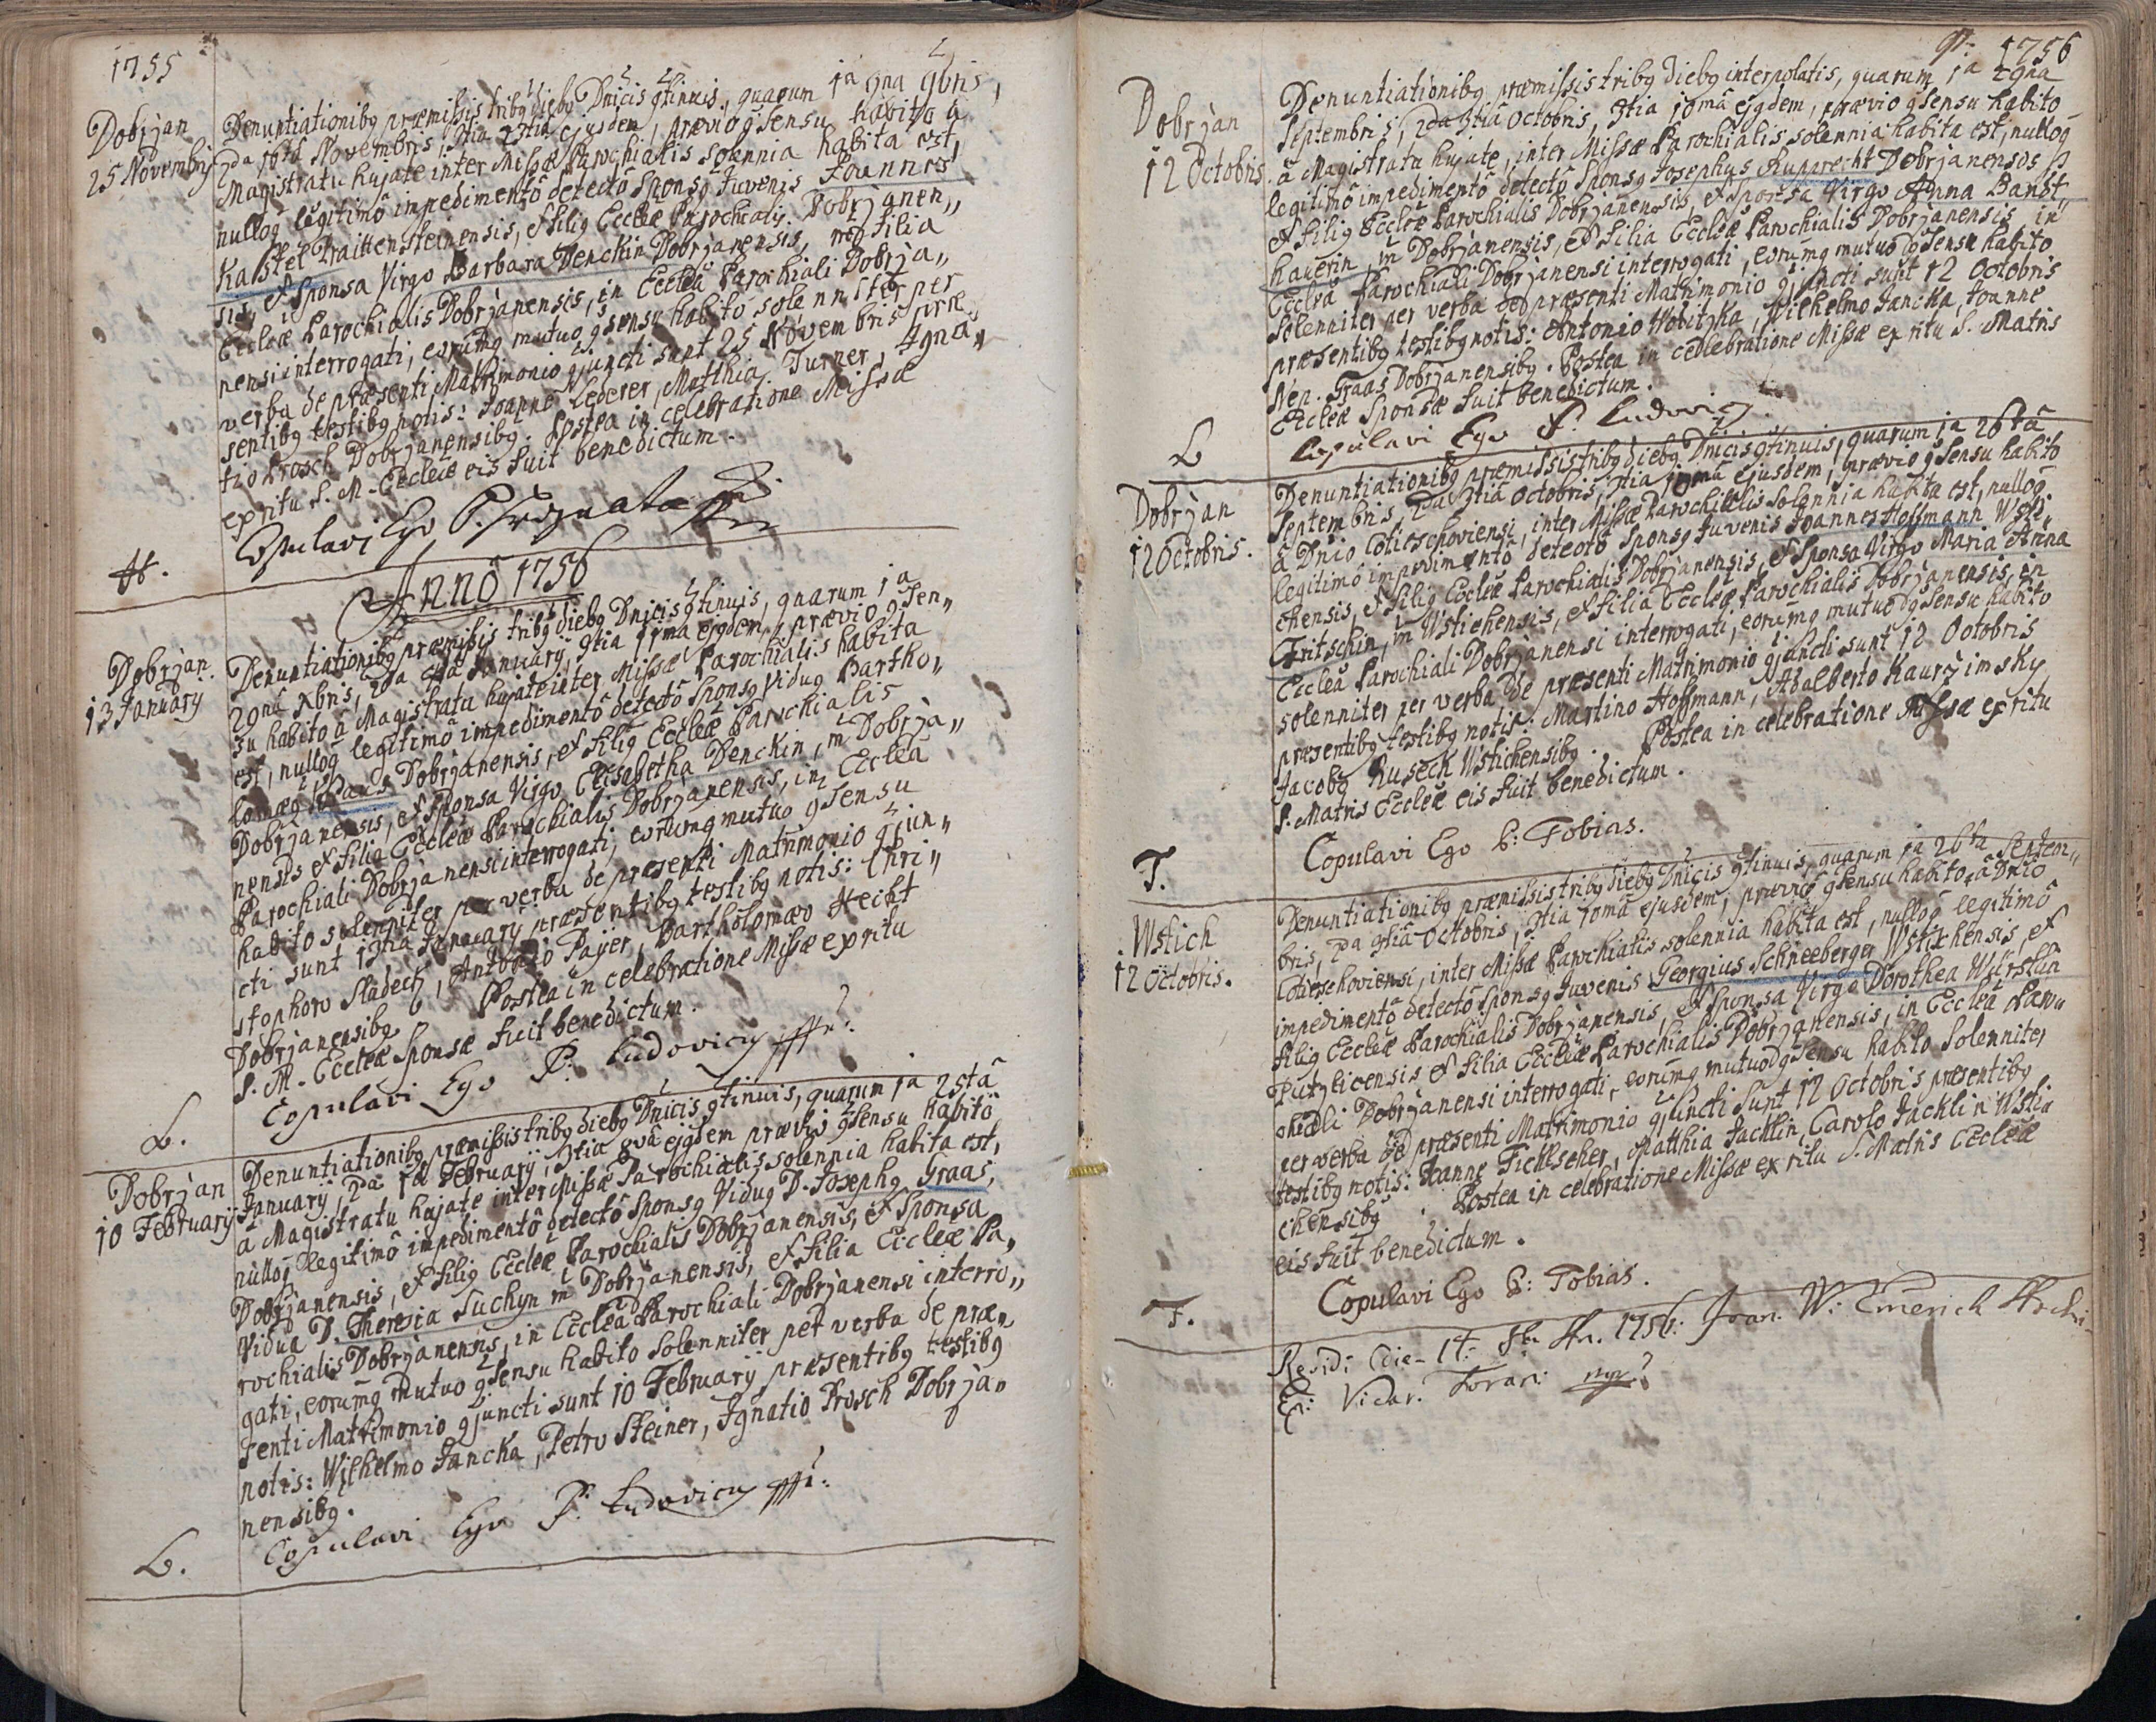 1755
Dobrzan
25 Novembris
Denuntiationibg præmissis tribg diebg Dnicis 9tinuis, quarum 1a 9na 9bris,
2da 16ta Novembris, 3tia 23tia ejusdem, prævio 9sensu habito à
Magistratu hujate inter Missæ Parochialis solennia habita est,
nullog legitimô impedimentô detectô Sponsg Juvenis Joannes
Kastel Traittensteinensis, & filig Eccleæ Parochialis Dobrzanen,,
sis, & Sponsa Virgo Barbara Denckin Dobrzanensis, filia
Eccleæ Parochialis Dobrzanensis, in Eccleâ Parochiali Dobrza,,
nensi interrogati, eorumq mutuo 9sensu habito solenniter per
verba de præsenti Matrimonio 9juncti sunt 25 Novembris præ,,
sentibg testibg notis: Joanne Lederer, Matthia Turner, Igna,,
tio Prosch Dobrzanensibg. Postea in celebratione Missæ
ex ritu S. M. Eccleæ eis fuit benedictum.
Copulavi Ego P.
H.
Annô 1756
Dobrzan
13 January
Denuntiationibg præmissis tribg diebg Dnicis 9tinuis, quarum 1a
29nâ Xbris, 2da 4tâ January, 3tia 11ma ejgdem, prævio 9sen,,
su habito â Magistratu hujate inter Missæ Parochialis habita
est, nullog legitimô impedimentô detectô Sponsg Vidug Bartho,,
lomæg Dobrzanensis, & filig Eccleæ Parochialis
Dobrzanensis, & Sponsa Virgo Elisabetha Denckin, m Dobrza,,
nensis & filia Eccleæ Parochialis Dobrzanensis, in Eccleâ
Parochiali Dobrzanensi interrogati, eorumq mutuo 9sensu
habito solenniter per verba de præsenti Matrimonio 9jun,,
cti sunt 13tia January præsentibg testibg notis: Chri,,
stophoro Sladeck, Antonio Paijer, Bartholomæo Hecht
Dobrzanensibg. Postea in celebratione Missæ ex ritu
S. M. Eccleæ Sponsæ fuit benedictum.
Copulavi Ego P. Ludovicg
L.
Dobrzan
10 February
Denuntiationibg præmissis tribg diebg Dnicis 9tinuis, quarum 1a 25tâ
January, 2da 1a February, 3tia 8vâ ejgdem prævio 9sensu habitô
â Magistratu hujate inter Missæ Parochialis solennia habita est,
nullog legitimô impedimentô detectô Sponsg Vidug D. Josephg Graas,
Dobrzanensis, & filig Eccleæ Parochialis Dobrzanensis, & Sponsa
Vidua D. Theresia Suchyn m Dobrzanensis, & filia Eccleæ Pa,,
rochialis Dobrzanensis, in Eccleâ Parochiali Dobrzanensi interro,,
gati, eorumq mutuo 9sensu habito solenniter per verba de præ,,
senti Matrimonio 9juncti sunt 10 February præsentibg testibg
notis: Wilhelmo Jancka, Petro Steiner, Ignatio Prosch Dobrza,,
nensibg.
Copulavi Ego P. Ludovicg
L.
91. 1756
Dobrzan
12 Octobris.
Denuntiationibg præmissis tribg diebg interpolatis, quarum 1a
Septembris, 2da 3tiâ Octobris, 3tia 10mâ ejgdem, prævio 9sensu habito
â Magistratu hujate, inter Missæ Parochialis solennia habita est, nullog
legitimô impedimentô detectô Sponsg Josephus Rupprecht Dobrzanensis,
& filig Eccleæ Parochialis Dobrzanensis, & Sponsa Virgo Anna Banst,,
hauerin, m Dobrzanensis, & filia Eccleæ Parochialis Dobrzanensis in
Eccleâ Parochiali Dobrzanensi interrogati, eorumq mutuo 9sensu habito
solenniter per verba de præsenti Matrimonio 9juncti sunt 12 Octobris
præsentibg testibg notis: Antonio Wobitzka, Wilhelmo Jancka, Joanne
Nep. Graas Dobrzanensibg. Postea in celebratione Missæ ex ritu S. Matris
Eccleæ Sponsæ fuit benedictum.
Copulavi Ego P. Ludovicg.
L
Dobrzan
12 Octobris.
Denuntiationibg præmissis tribg diebg Dnicis 9tinuis, quarum 1a 26tâ
Septembris, 2da 3tiâ Octobris, 3tia 10mâ ejusdem, prævio 9sensu habito
â Dnio Cotieschoviensi, inter Missæ Parochialis solennia habita est, nullog
legitimô impedimentô detectô Sponsg Juvenis Joannes Hoffmann Wsti,,
chensis, & filig Eccleæ Parochialis Dobrzanensis, & Sponsa Virgo Maria Anna
Fritschin, m Wstichensis, & filia Eccleæ Parochialis Dobrzanensis, in
Eccleâ Parochiali Dobrzanensi interrogati, eorumq mutuo 9sensu habito
solenniter per verba de præsenti Matrimonio 9juncti sunt 12 Octobris
præsentibg testibg notis: Martino Hoffmann, Adalberto Kaurzimsky,
Jacobg Ruseck Wstichensibg. Postea in celebratione Missæ ex ritu
S. Matris Eccleæ eis fuit benedictum.
Copulavi Ego P: Tobias.
T.
Wstich
12 Octobris.
Denuntiationibg præmissis tribg diebg Dnicis 9tinuis, quarum 1a 26ta Septem,,
bris, 2da 3tiâ Octobris, 3tia 10mâ ejusdem, prævio 9sensu habito â Dnio
Cotieschoviensi, inter Missæ Parochialis solennia habita est, nullog legitimô
impedimentô detectô Sponsg Juvenis Georgius Schneeberger Wstichensis, &
filig Eccleæ Parochialis Dobrzanensis, & Sponsa Virgo Dorothea Würstlin
Putzlicensis & filia Eccleæ Parochialis Dobrzanensis, in Eccleâ Paro,,
chiali Dobrzanensi interrogati, eorumq mutuo 9sensu habito solenniter
per verba de præsenti Matrimonio 9juncti sunt 12 Octobris præsentibg
testibg notis: Joanne Ficklscher, Matthia Jacklin, Carolo Jacklin Wsti,,
chensibg. Postea in celebratione Missæ ex ritu S. Matris Eccleæ
eis fuit benedictum.
Copulavi Ego P: Tobias.
T.
die 14: 8br. 1756: Joan: W: Emerich
Vicar. Foran: mp